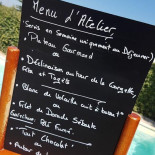 Menu d'Atelier
(Servis en Semaine uniquement au Déjeuner)
Plateau Gourmand
ou
Déclinaison autour de la Courgette,
Feta et
ou
Blanc de Volaille cuit à basse t°
ou
Filet de Dorade Sébaste
Garniture: Fumé
Tout Chocolat
ou
Autour de